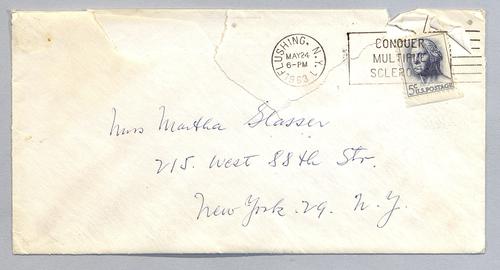 FLUSHING, N.Y. 1
MAY 24
6-PM
1963
CONQUER
MULTIPLE
SCLERO
5c U.S. POSTAGE
Miss Martha Glasser
215. West 88th Str.
New York. 29. N.Y.